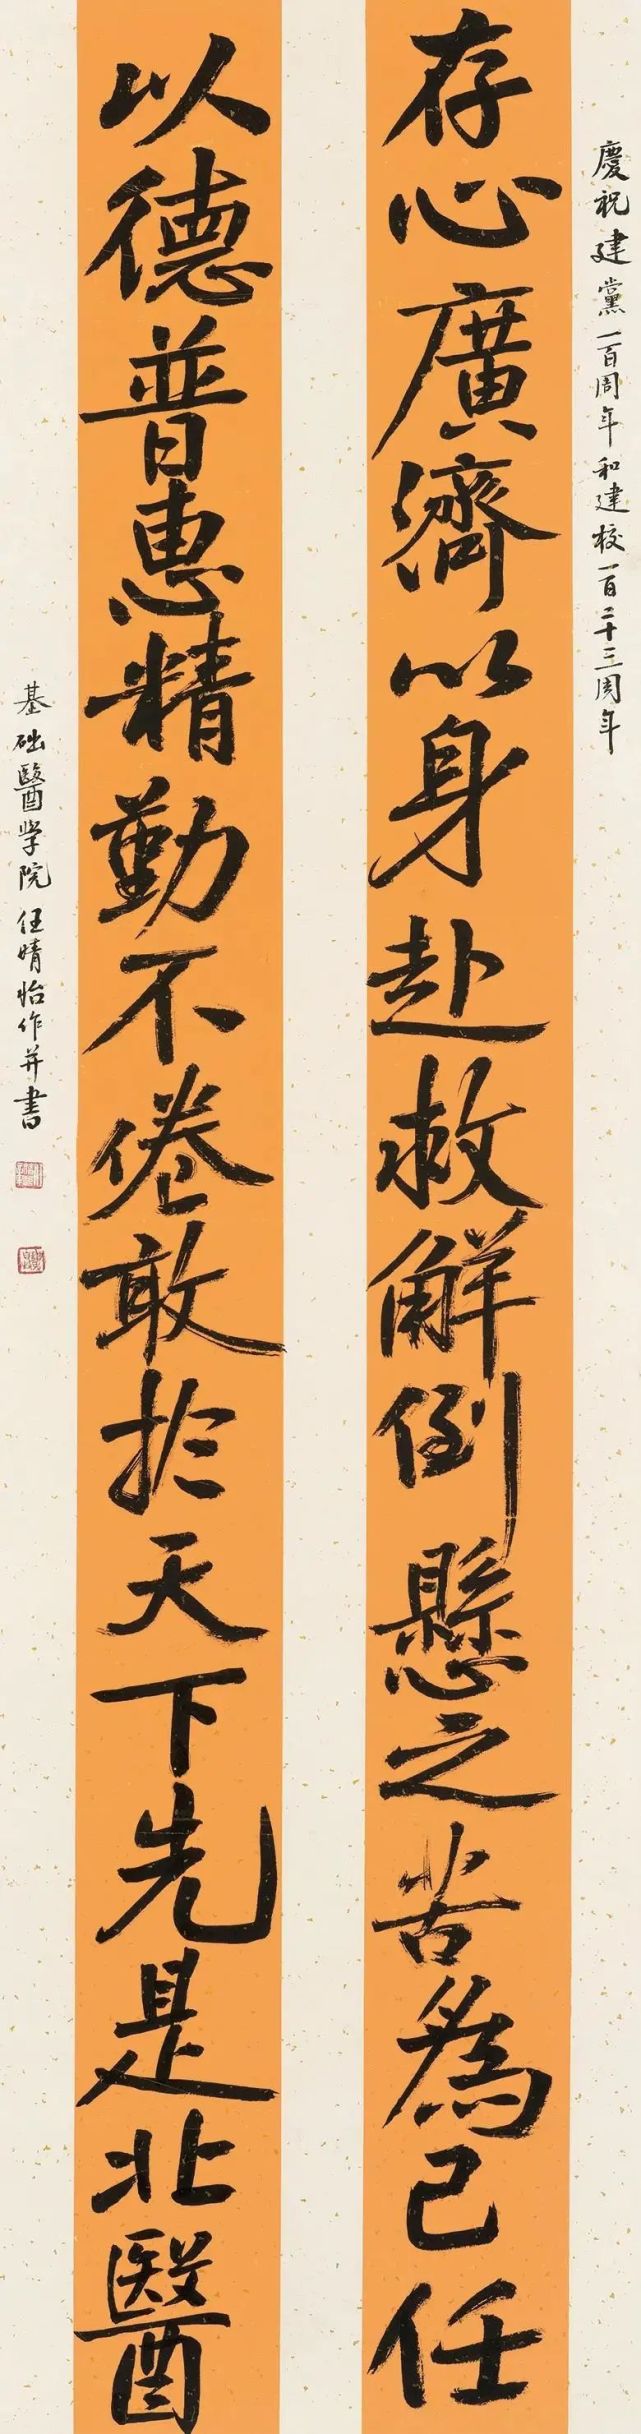 慶祝建黨一百周年和建校一百二十三周年
存心廣濟以身赴救解倒懸之苦為己任
以德普惠精勤不倦敢於天下先是北醫
基础醫学院任晴怡作并書